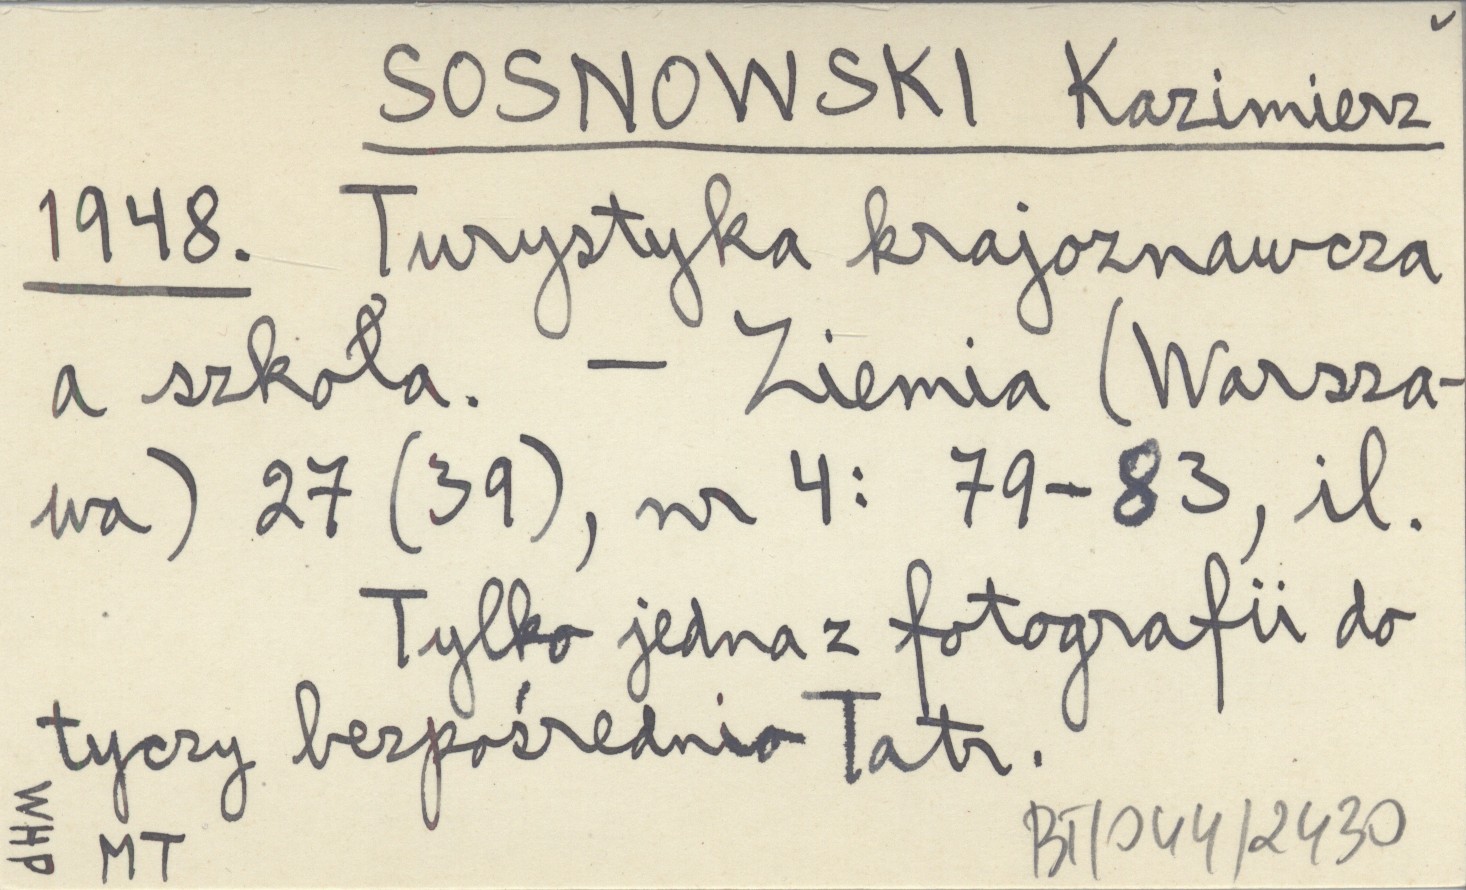 SOSNOWSKI Kazimierz
1948. Turystyka krajoznawcza
a szkoła. — Ziemia (Warsza-
wa) 27 (39), nr 4: 79-83, il.
Tylko jedna z fotografii do
tyczy bezpośrednio Tatr.
WHP
MT
BT/044/2430